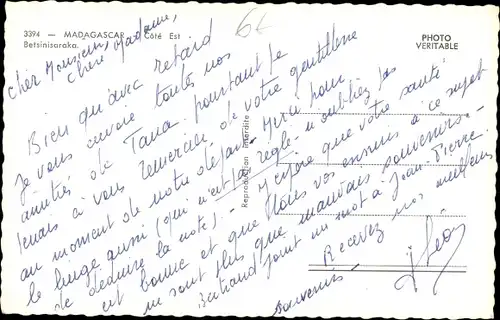 3394 — MADAGASCAR - Côté Est
Betsinisaraka.
PHOTO
VERITABLE
Reproduction Interdite
6€
Cher Monsieur,
Chère Madame,
Bien qu'avec retard
Je vous envoie toutes nos
amitiés de Tana. pourtant je
tenais à vous remercier de votre gentillesse
au moment de notre départ - Merci pour
le linge aussi (qui n'est réglé - n'oubliez pas
de déduire la note). - J'espère que votre santé
est bonne et que tous vos ennuis à ce sujet
ne sont plus que mauvais souvenirs -
Bertrand joint un mot à Jean-Pierre.
Recevez nos meilleurs
Souvenirs -